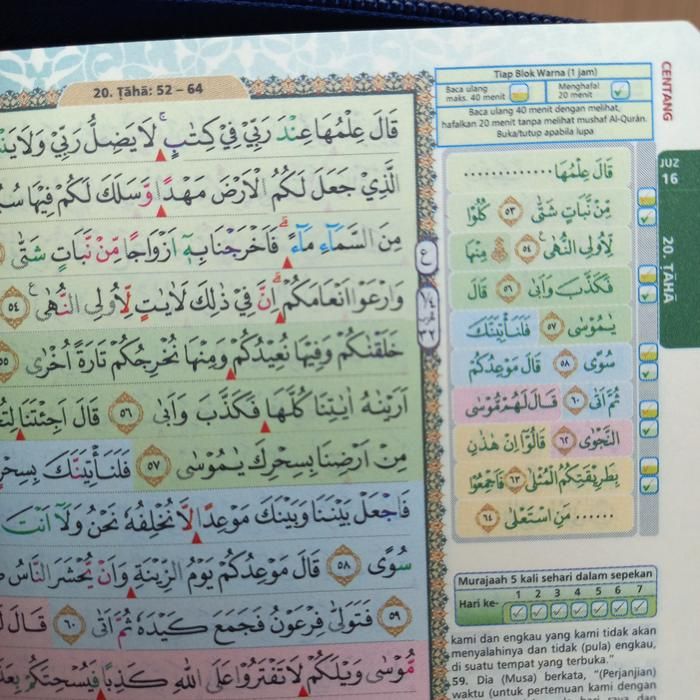 20. Ṭāhā: 52 – 64
قَالَ عِلْمُهَا عِنْدَ رَبِّيْ فِيْ كِتٰبٍۚ لَا يَضِلُّ رَبِّيْ وَلَا
الَّذِيْ جَعَلَ لَكُمُ الْاَرْضَ مَهْدًا وَّسَلَكَ لَكُمْ فِيْهَا
مِنَ السَّمَاۤءِ مَاۤءًۗ فَاَخْرَجْنَا بِهٖٓ اَزْوَاجًا مِّنْ نَّبَاتٍ شَتّٰى
وَارْعَوْا اَنْعَامَكُمْۗ اِنَّ فِيْ ذٰلِكَ لَاٰيٰتٍ لِّاُولِى النُّهٰىࣖ ٥٤
خَلَقْنٰكُمْ وَفِيْهَا نُعِيْدُكُمْ وَمِنْهَا نُخْرِجُكُمْ تَارَةً اُخْرٰى ٥٥
اَرَيْنٰهُ اٰيٰتِنَا كُلَّهَا فَكَذَّبَ وَاَبٰى ٥٦ قَالَ اَجِئْتَنَا
مِنْ اَرْضِنَا بِسِحْرِكَ يٰمُوْسٰى ٥٧ فَلَنَأْتِيَنَّكَ بِسِحْرٍ
فَاجْعَلْ بَيْنَنَا وَبَيْنَكَ مَوْعِدًا لَّا نُخْلِفُهٗ نَحْنُ وَلَآ اَنْتَ
سُوًى ٥٨ قَالَ مَوْعِدُكُمْ يَوْمُ الزِّيْنَةِ وَاَنْ يُّحْشَرَ النَّاسُ
٥٩ فَتَوَلّٰى فِرْعَوْنُ فَجَمَعَ كَيْدَهٗ ثُمَّ اَتٰى ٦٠ قَالَ
مُّوْسٰى وَيْلَكُمْ لَا تَفْتَرُوْا عَلَى اللّٰهِ كَذِبًا فَيُسْحِتَكُمْ
ع
Tiap Blok Warna (1 jam)
Baca ulang maks. 40 menit
Menghafal 20 menit
Baca ulang 40 menit dengan melihat,
hafalkan 20 menit tanpa melihat mushaf Al-Qurán.
Buka/tutup apabila lupa
قَالَ عِلْمُهَا.............
مِّنْ نَّبَاتٍ شَتّٰى ٥٣ كُلُوْا
لِّاُولِى النُّهٰىࣖ ٥٤ مِنْهَا
فَكَذَّبَ وَاَبٰى ٥٦ قَالَ
يٰمُوْسٰى ٥٧ فَلَنَأْتِيَنَّكَ
سُوًى ٥٨ قَالَ مَوْعِدُكُمْ
ثُمَّ اَتٰى ٦٠ قَالَ لَهُمْ مُّوْسٰى
النَّجْوٰى ٦٢ قَالُوْٓا اِنْ هٰذٰنِ
بِطَرِيْقَتِكُمُ الْمُثْلٰى ٦٣ فَاَجْمِعُوْا
...... مَنِ اسْتَعْلٰى ٦٤
Murajaah 5 kali sehari dalam sepekan
Hari ke- 1 2 3 4 5 6 7
kami dan engkau yang kami tidak akan
menyalahinya dan tidak (pula) engkau,
di suatu tempat yang terbuka."
59. Dia (Musa) berkata, "(Perjanjian)
waktu (untuk pertemuan kami dengan
CENTANG
JUZ
16
20. ṬĀHĀ